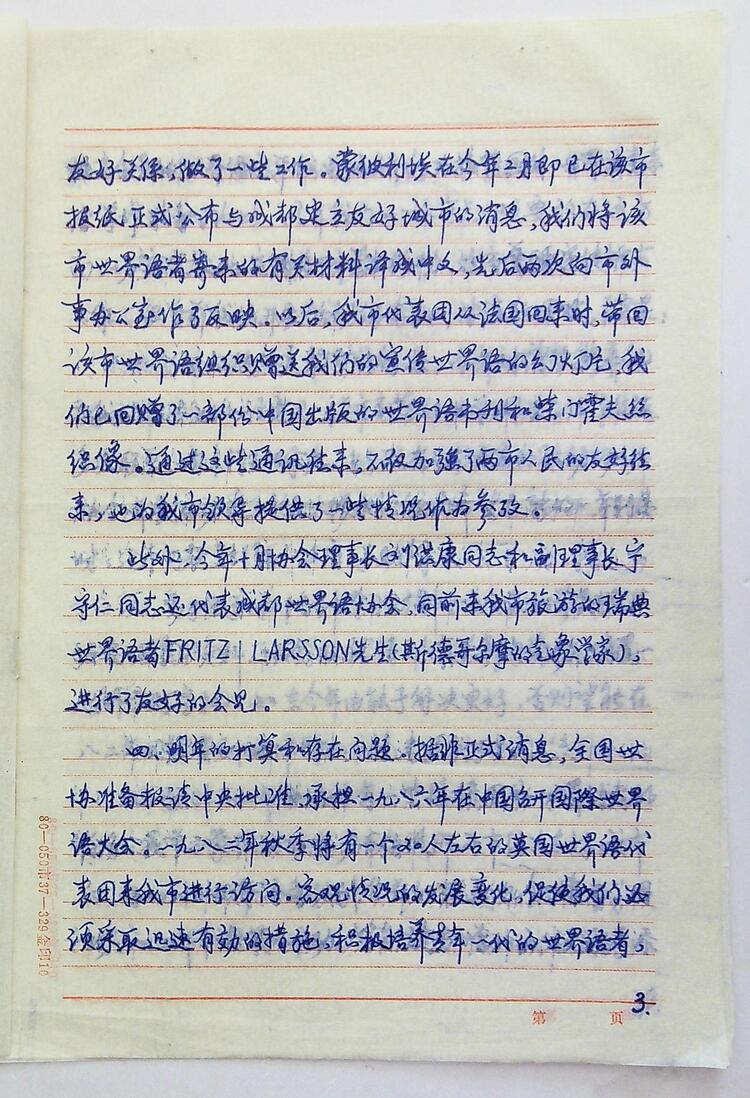 友好关係，做了一些工作。蒙彼利埃在今年二月即已在该市
报纸正式公布与成都建立友好城市的消息，我们将该
市世界语者寄来的有关材料译成中文，先后两次向市外
事办公室作了反映。以后，我市代表团从法国回来时，带回
该市世界语组织赠送我们的宣传世界语的幻灯片，我
们已回赠了一部份中国出版的世界语书刊和柴门霍夫丝
织像。通过这些通讯往来，不仅加强了两市人民的友好往
来，也为我市领导提供了一些情况作为参攷。
此外，今年十月协会理事长刘洪康同志和副理事长宁
守仁同志还代表成都世界语协会，同前来我市旅游的瑞典
世界语者FRITZ LARSSON先生(斯德哥尔摩的气象学家)，
进行了友好的会见。
四、明年的打算和存在问题。据非正式消息，全国世
协准备报请中央批准，承担一九八六年在中国召开国际世界
语大会。一九八二年秋季将有一个20人左右的英国世界语代
表团来我市进行访问。客观情况的发展变化，促使我们必
须采取迅速有效的措施，积极培养青年一代的世界语者，
第 页
3.
80—050市37—329金印110